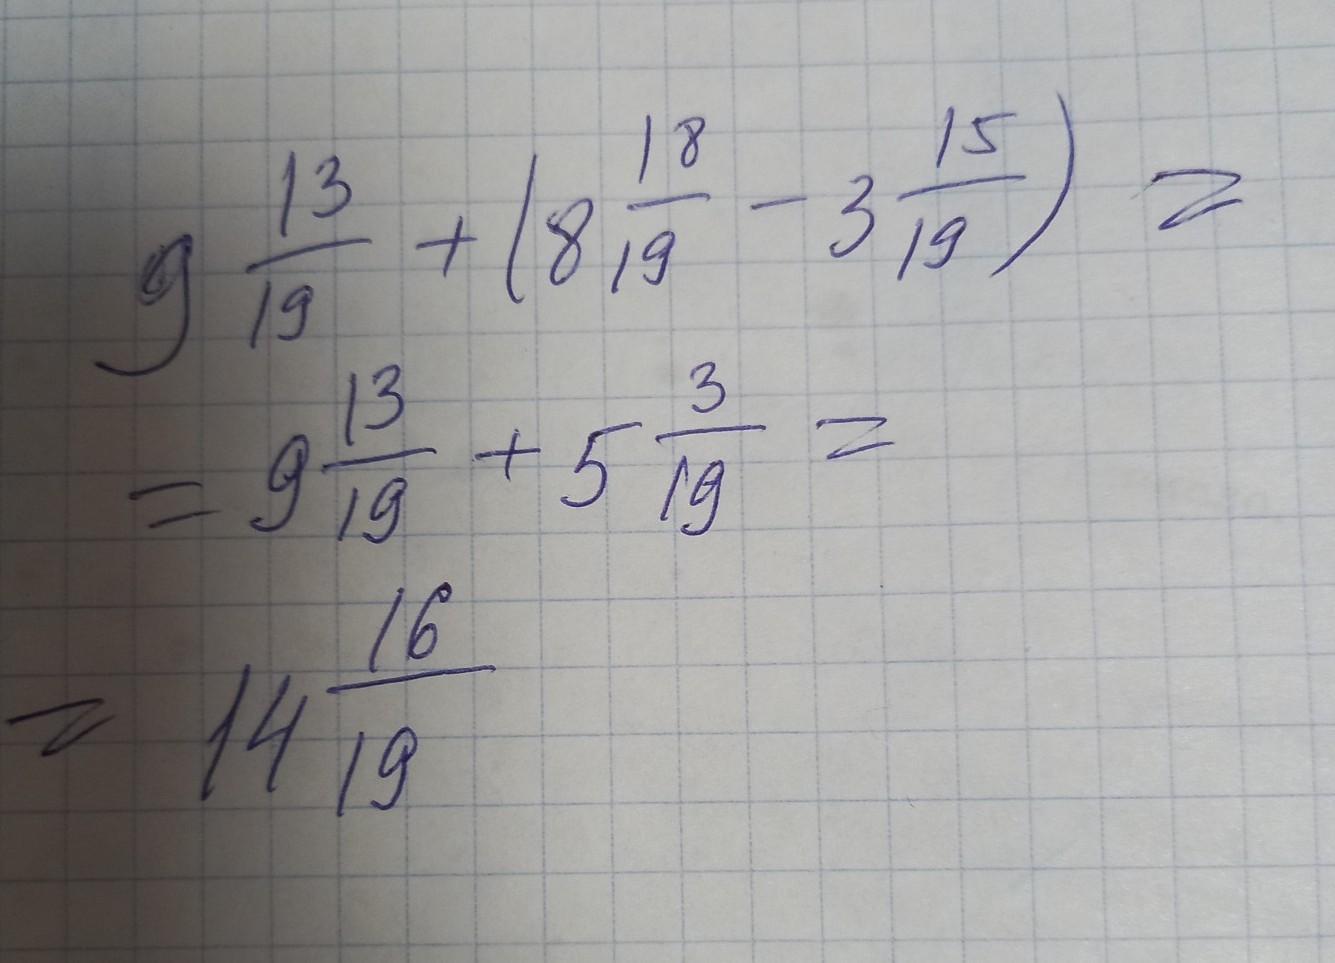 9 13/19 + (8 18/19 - 3 15/19) =
= 9 13/19 + 5 3/19 =
= 14 16/19